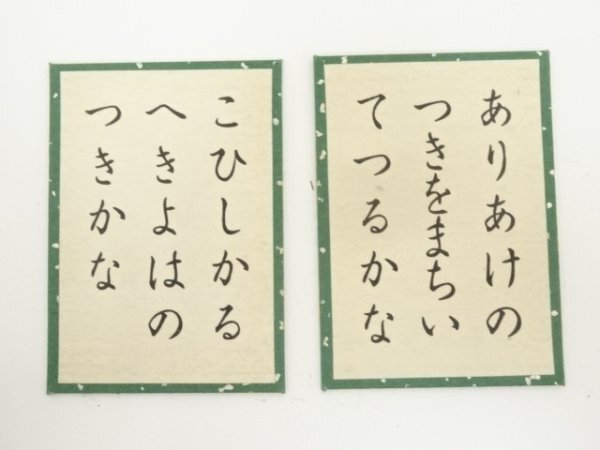 ありあけの
つきをまちい
てつるかな
こひしかる
へきよはの
つきかな